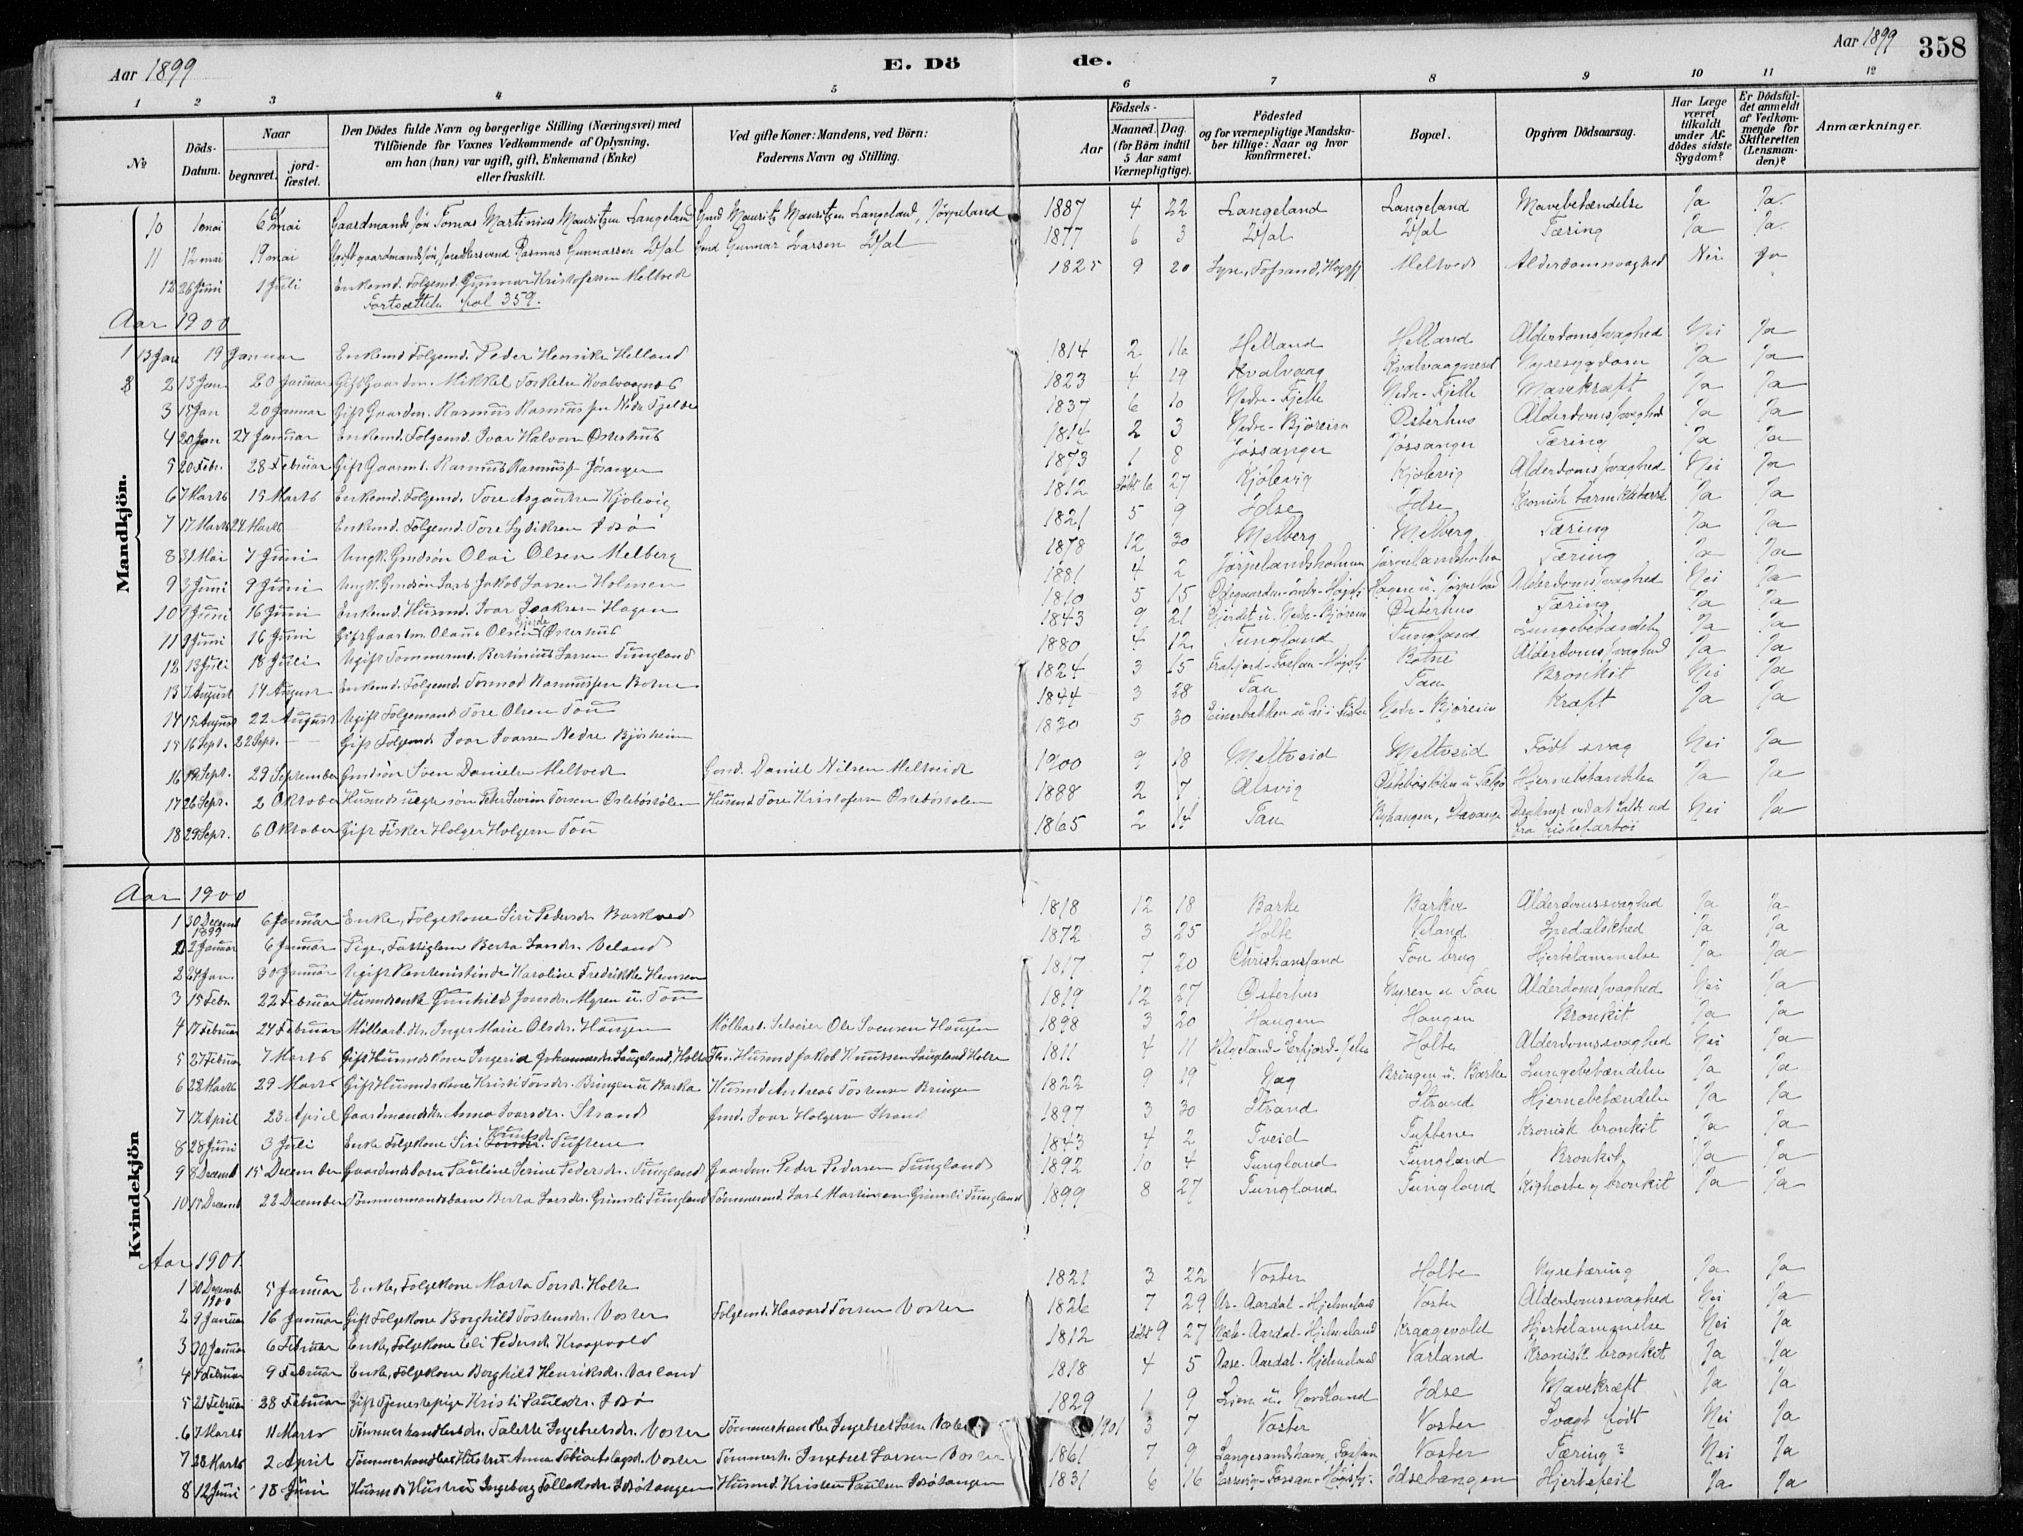 Aar 1899 E. Dö de. Aar 1899 358
1 2 3 4 5 6 7 8 9 10 11 12
No
Döds-Datum.
Naar
begravet.
jordfæstet.
Den Dödes fulde Navn og borgerlige Stilling (Næringsvei) med
Tilföiende for Voxnes Vedkommende af Oplysning,
om han (hun) var ugift, gift, Enkemand (Enke)
eller fraskilt.
Ved gifte Koner: Mandens, ved Börn:
Faderens Navn og Stilling.
Födsels-
Aar
Maaned.
Dag.
(for Börn indtil
5 Aar samt
Værnepligtige).
Födested
og for værnepligtige Mandska-
ber tillige: Naar og hvor
konfirmeret.
Bopæl.
Opgiven Dödsaarsag.
Har Læge
været
tilkaldt
under Af-
dödes sidste
Sygdom?
Er Dödsfal-
det anmeldt
af Vedkom-
mende for
Skifteretten
(Lensman-
den)?
Anmærkninger.
Mandkjön.
10 1 mai 6 mai Gaardmands søn Tomas Martinius Mauritzen Langeland Gmd Mauritz Mauritzen Langeland, Jørpeland 1887 4 22 Langeland Langeland Mavebetændelse Ja Ja
11 12 mai 19 mai Rasmus Gunnarsen Gmd Gunnar Larsen 1877 6 3 Tæring Ja Ja
12 26 Juni 1 Juli Enkemd. Folgemd. Gunnar Kristofersen Meltved 1825 9 20 Meltved Alderdomssvaghed Nei Ja
Fortsættes fol 359.
Aar 1900
1 13 Jan 19 Januar Enkemd Folgemd. Peder Henriksen Helland 1814 2 16 Helland Helland Alderdomssvaghed Nei Ja
2 13 Jan. 20 Januar Gift Gaardm. Mikkel Torkelsen Kvalvaagnes 1823 4 19 Kvalvaag Kvalvaagneset Nyresygdom Ja Ja
3 15 Jan 20 Januar Gift Gaardm. Rasmus Rasmussen Nedre Fjelde 1837 6 10 Nedre-Fjelle Nedre-Fjelle Mavekræft Ja Ja
4 20 Jan 27 Januar Enkemd. Folgemd. Ivar Halvorsen Østerhus 1814 2 3 Nedre-Björeim Østerhus Alderdomssvaghed Ja Ja
5 20 Febr. 28 Februar Gift Gaardmd. Rasmus Rasmuss. Jøsanger 1873 1 8 Jøssanger Jøssanger Tæring Ja Ja
6 7 Marts 15 Marts Enkemd. Folgemd. Tore Asgautsen Kjölevig 1812 døbt 6 27 Kjölevig Kjölevig Alderdomssvaghed Nei Ja
7 17 Marts 24 Marts Enkemd. Folgemd. Tore Lydiksen Idsø 1821 5 9 Idse Idse Kronisk Tarmkatarrh Ja Ja
8 31 Mai 7 Juni Ungk. Gmdsön Olai Olsen Melberg 1878 12 30 Melberg Melberg Tæring Ja Ja
9 3 Juni 9 Juni Ungk. Gmdsön Lars Jakob Larsen Holmen 1881 4 2 Jörpelandsholmen Jörpelandsholmen Tæring Ja Ja
10 9 Juni 16 Juni Enkemd. Husmd. Ivar Isaksen Hagen 1810 5 15 Hagen u. Jørpeland Alderdomssvaghed Nei Ja
11 9 Juni 16 Juni Gift Gaardm. Olaus Olsen Gjerde Østerhus 1843 9 21 Gjerdet u. Nedre-Björeim Østerhus Tæring Ja Ja
12 13 Juli 18 Juli Ugift Tømmermd. Bertinius Larsen Tungland 1880 4 12 Tungland Tungland Lungebetændelse Ja Ja
13 7 August 14 August Enkemd. Folgemd. Tormod Rasmussen Botne 1824 3 15 Frafjord-Fossan-Högsfj. Botne Alderdomssvaghed Ja Ja
14 15 August 22 August Ugift Folgemand Tore Olsen Tou 1844 3 28 Tau Tau Bronkit Nei Ja
15 16 Sept. 22 Sept. Gift Folgemd. Ivar Ivarsen Nedre Björeim 1830 5 30 Einerbakken Nedre-Björeim Kræft Ja Ja
16 19 Sept. 29 September Gmdsön Sven Danielsen Meltved Gmd. Daniel Nilsen Meltveid 1900 9 18 Meltveid Meltveid Født svag Nei Ja
17 26 Sept. 2 Oktober Husmds uægte sön Peter Severin Torsen Östeböstölen Husmd Tore Kristofersen Östeböstölen 1888 2 7 Alsvig Østebøstölen Hjernebetændelse Ja Ja
18 29 Sept. 6 Oktober Gift Fisker Holger Holgersen Tou 1865 2 14 Tau Byhaugen, Stavanger Druknet ved at falde ud Nei Ja
fra fiskefartøi
Kvindekjön
Aar 1900
1 30 Decemb 1899 6 Januar Enke, Folgekone Siri Pedersdr. Barkved 1818 12 18 Barke Barkve Alderdomssvaghed Ja Ja
2 Januar 6 Januar Pige, Fattiglem Berta Larsdr. Veland 1872 3 25 Holte Veland Spedalskhed Ja Ja
2 24 Jan. 30 Januar Ugift Rentenistinde Karoline Fredrikke Hansen 1817 7 20 Christiansand Tou brug Hjertelammelse Ja Ja
3 15 Febr. 22 Februar Husmdsenke Gunhild Jonsdr. Myren u. Tou 1819 12 27 Østerhus Myren u Tau Alderdomssvaghed Nei Ja
4 17 Februar 24 Februar Möllearb. dtr. Inger Marie Olsdr. Haugen Möllearb. Selveier Ole Svensen Haugen 1898 3 20 Haugen Haugen Bronkit. Ja Ja
5 27 Februar 7 Marts Gift Husmdskone Ingerid Johannesdr. Langeland, Holte Fhv. Husmd Jakob Knutsen Langland Holte 1811 4 11 Helgeland-Erfjord-Jelse Holte Alderdomssvaghed Nei Ja
6 22 Marts 29 Marts Gift Husmdskone Kristi Torsdr. Bringen u Barka Husmd Andreas Tostensen Bringen 1822 9 19 Nag Bringen u. Barke Lungebetændelse Ja Ja
7 17 April 23 April Gaardmandsdtr. Anna Ivarsdr. Strand Gmd. Ivar Holgersen Strand 1897 3 30 Strand Strand Hjernebetændelse Ja Ja
8 28 Juni 3 Juli Enke Folgekone Siri Knutsd. Tuftene 1843 4 2 Tveid Tuftene Kronisk bronkit Ja Ja
9 8 Decemb 15 December Gaardmdsbarn Pauline Serine Pedersdr. Tungland Gaardm. Peder Pedersen Tungland 1892 10 4 Tungland Tungland Bronkit Ja Ja
10 15 Decemb 22 December Tömmermandsbarn Berta Larsdr. Grimsli Tungland Tømmermd. Lars Martinsen Grimsli Tungland 1899 8 27 Tungland Tungland Kighoste og bronkit Ja Ja
Aar 1901.
1 30 Decemb. 1900 5 Januar Enke, Folgekone Marta Torsdr. Holte 1821 3 22 Voster Holte Nyretæring Ja Ja
2 9 Januar 16 Januar Gift Folgekone Borghild Tostensdr. Voster Folgemd. Haavard Torsen Voster 1826 7 29 Aardal-Hjelmeland Voster Alderdomssvaghed Nei Ja
3 30 Januar 6 Februar Enke, Folgekone Eli Pedersdr. Kraagevold 1812 døbt 9 27 Aardal-Hjelmeland Kraagevold Hjertelammelse Nei Ja
4 4 Februar 9 Februar Enke, Folgekone Borghild Henriksdr. Varland 1818 4 5 Aase-Aardal-Hjelmeland Varland Kronisk bronkit Ja Ja
5 21 Februar 28 Februar Gift Tjenestepige Kristi Paulsdr. Idsø 1829 1 9 Lien u. Nordland Idse Mavekræft Ja Ja
6 7 Marts 11 Marts Tømmerhandlersdtr. Talette Ingebretsdr. Voster Tömmerhandler Ingebret Larsen Voster 1901 3 7 Voster Voster Svagt født Nei Ja
7 28 Marts 2 April Tømmerhandlers Hustru Anna Voster Tømmerh. Ingebret Larsen Voster 1861 7 9 Voster Tæring? Nei Ja
8 12 Juni 18 Juni Husmds Hustru Ingeborg Tolleksdr Idsötangen Husmd. Kristen Paulsen Idsötangen 1831 6 16 Fossan-Högsfj. Idsetangen Hjertefeil Ja Ja